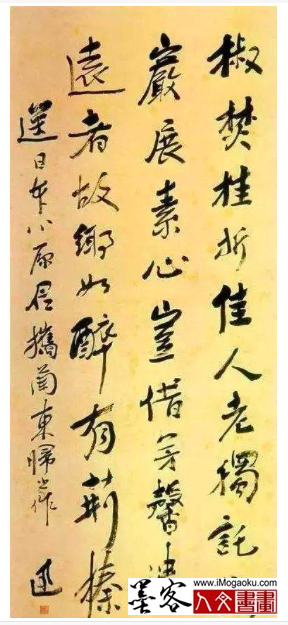 椒焚桂折佳人老獨託
巖展素心豈惜芳馨
遠者故鄉如醉有荊榛
送日本小原君攜蘭東歸之作
迅
www.iMogaoku.com
墨客
人文書畫